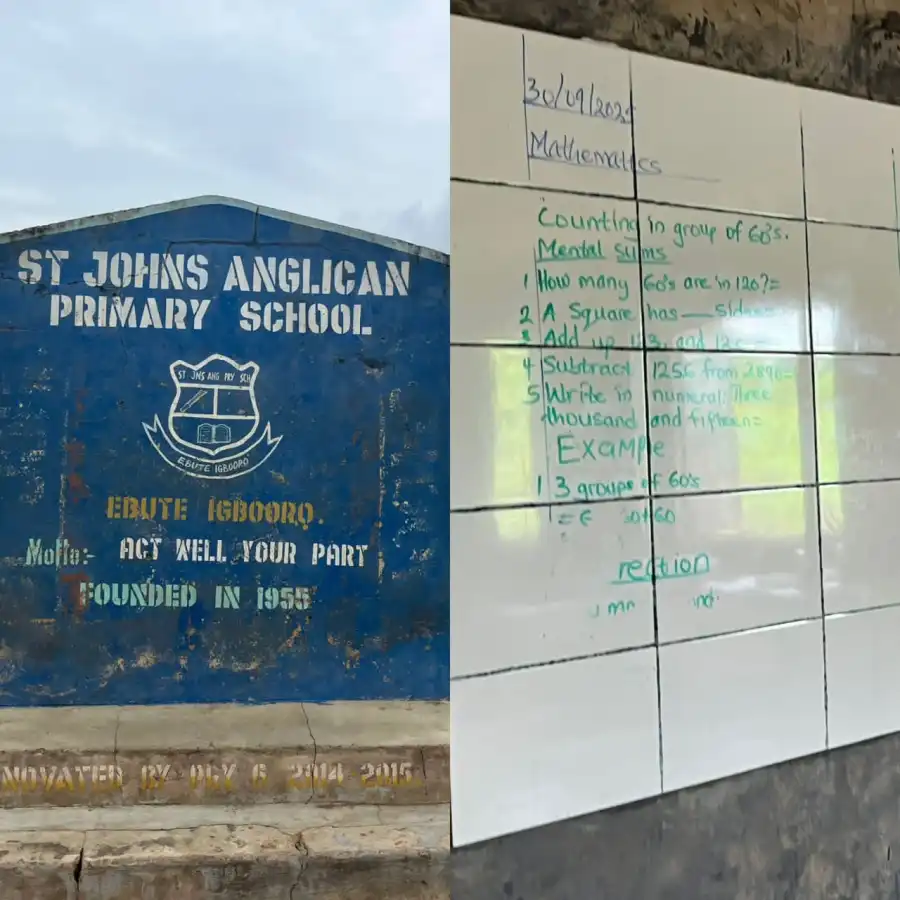 ST JOHNS ANGLICAN
PRIMARY SCHOOL
ST JNS ANG PRY SCH
EBUTE IGBOORO
EBUTE IGBOORO.
Motto:- ACT WELL YOUR PART
FOUNDED IN 1955
NOVATED BY PRY 6 2014-2015
30/09/202
Mathematics
Counting in group of 60's.
Mental Sums
1 How many 60's are in 120?=
2 A Square has — Sides=
3 Add up 3, and
4 Subtract 1256 from
5 Write in numeral: Three
thousand and fifteen=
Example
1 3 groups of 60's
= 60
rection